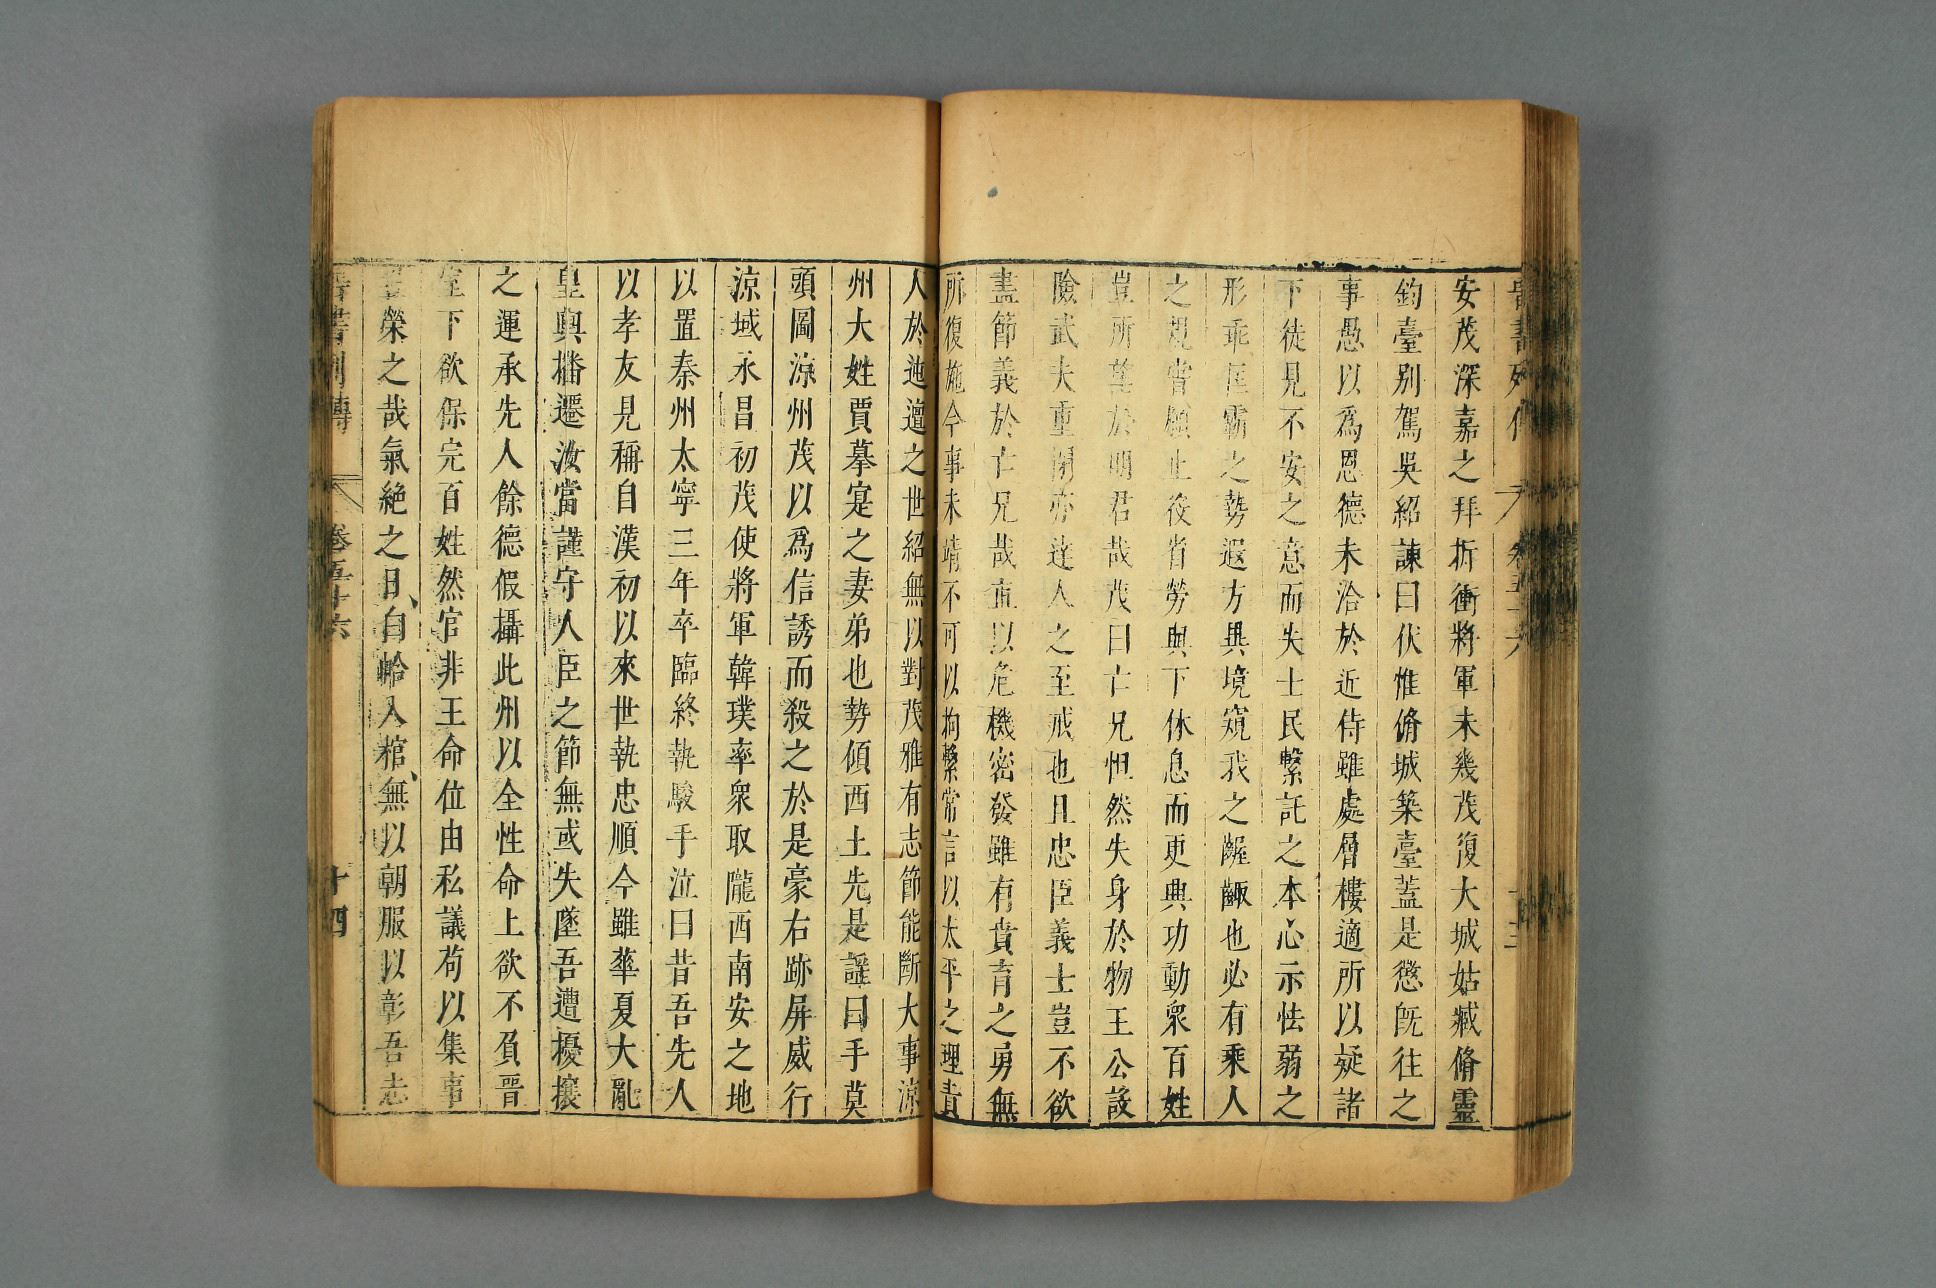 晉書列傳 卷五十六 十三
安茂深嘉之拜折衝將軍未幾茂復大城姑臧脩靈
鈞臺別駕吳紹諫曰伏惟脩城築臺蓋是懲旣往之
事愚以爲恩德未洽於近侍雖處層樓適所以疑諸
下徒見不安之意而失士民繫託之本心示怯弱之
形乖匡霸之勢遐方異境窺我之齷齪也必有乘人
之規嘗願止役省勞與下休息而更興功動衆百姓
豈所望於明君哉茂曰亡兄怛然失身於物王公設
險武夫重閉亦達人之至戒也且忠臣義士豈不欲
盡節義於亡兄哉直以危機密發雖有賁育之勇無
所復施今事未靖不可以拘繫常言以太平之理責
人於迍邅之世紹無以對茂雅有志節能斷大事涼
州大姓賈摹寔之妻弟也勢傾西土先是謠曰手莫
頭圖涼州茂以爲信誘而殺之於是豪右跡屏威行
涼域永昌初茂使將軍韓璞率衆取隴西南安之地
以置秦州太寧三年卒臨終執駿手泣曰昔吾先人
以孝友見稱自漢初以來世執忠順今雖華夏大亂
皇輿播遷汝當謹守人臣之節無或失墜吾遭擾攘
之運承先人餘德假攝此州以全性命上欲不負晉
室下欲保完百姓然官非王命位由私議苟以集事
豈榮之哉氣絕之日自帢入棺無以朝服以彰吾志
晉書列傳 卷五十六 十四